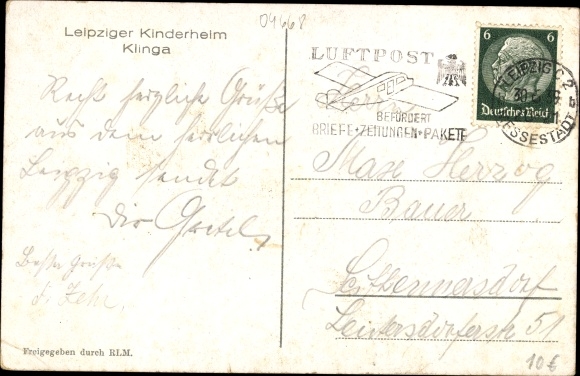 04668
Leipziger Kinderheim
Klinga
Recht herzliche Grüße
aus dem herrlichen
Leipzig sendet
Dir Gretel
Beste Grüße
Freigegeben durch RLM.
LUFTPOST
BEFÖRDERT
BRIEFE+ZEITUNGEN+PAKETE
6 6
Deutsches Reich
LEIPZIG C 2
MESSESTADT
Herrn
Max Herzog
Bauer
Seifhennersdorf
Leutersdorferstr 51
10€